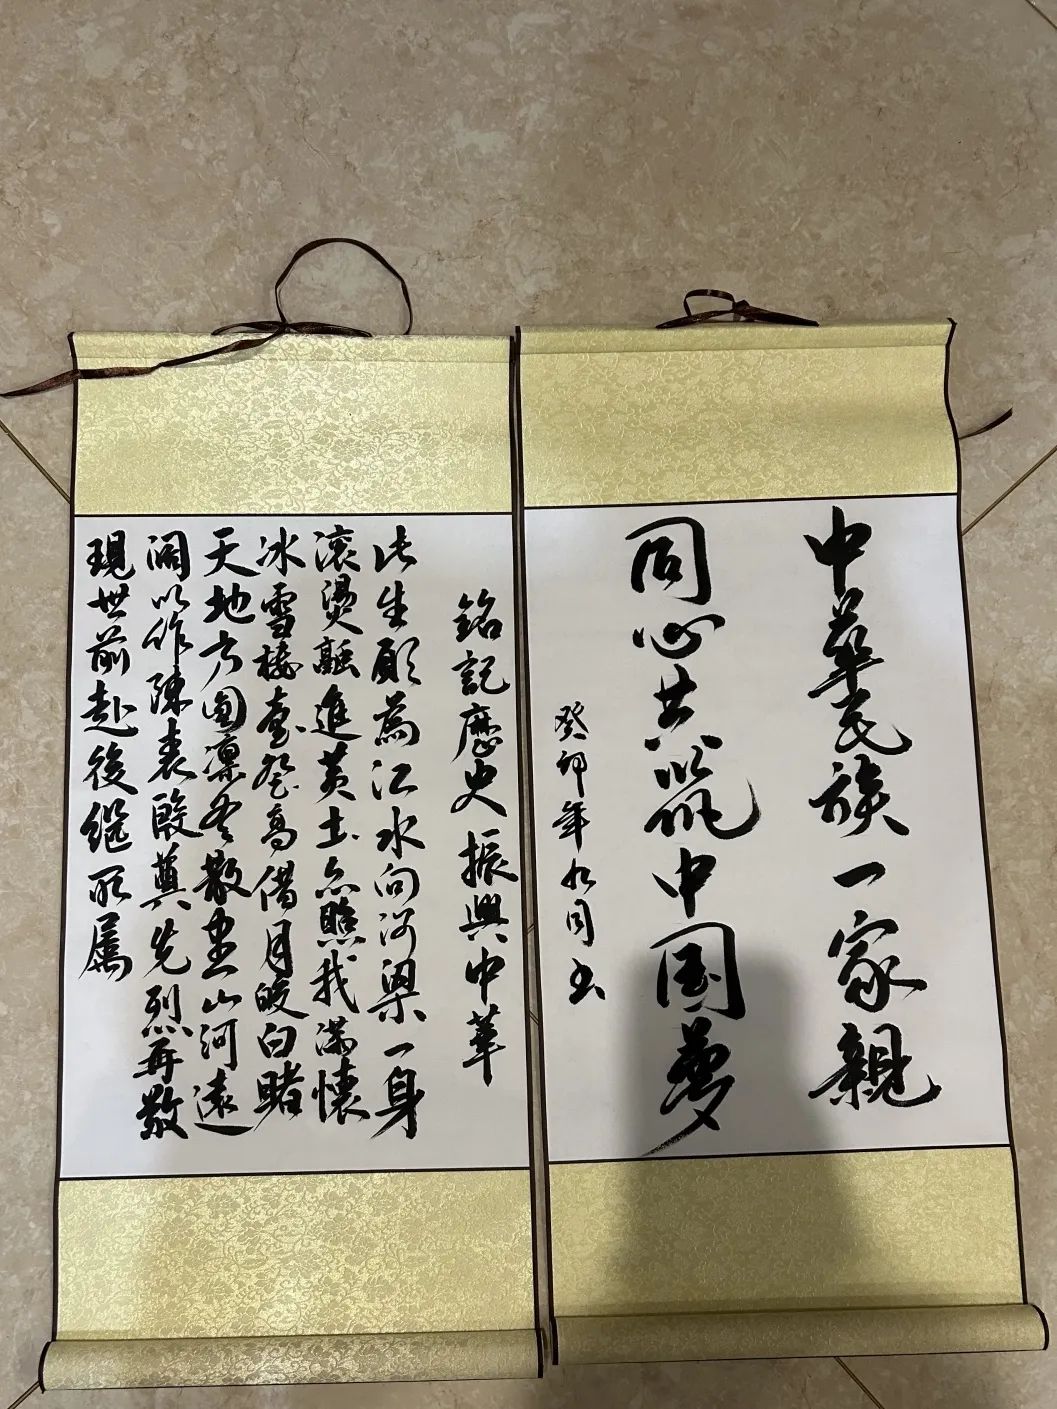 中華民族一家親
同心共筑中国夢
癸卯年九月书
銘記歷史 振興中華
此生願為江水向河梁一身
滾燙融進黃土亦照我满懷
冰雪樓臺登高借月皎白睹
天地方圓凛冬散盡山河遠
闊以作陳表殷奠先烈再敬
現世前赴後繼所屬